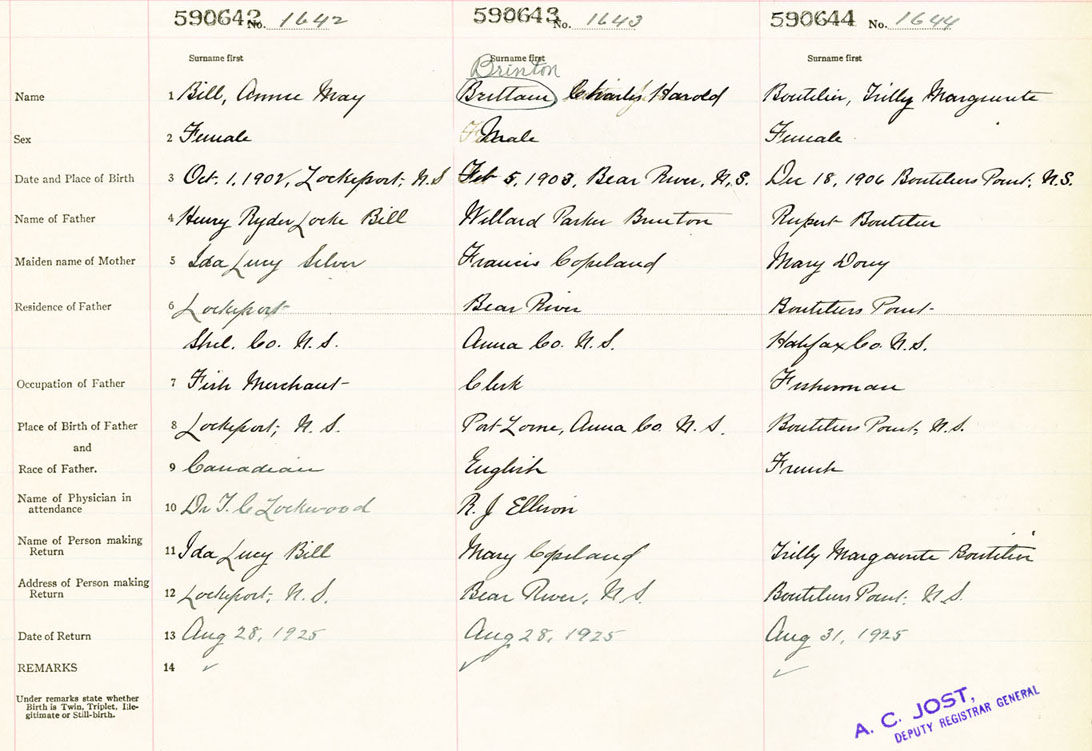 590642 No. 1642 590643 No. 1643 590644 No. 1644
Surname first Surname first Surname first
Brinton
Name 1 Bill, Annie May Brittain Charles Harold Boutilier, Trilly Marguerite
Sex 2 Female Male Female
Date and Place of Birth 3 Oct. 1, 1902, Lockeport, N.S Feb 5, 1903, Bear River, N.S. Dec 18, 1906 Boutiliers Point, N.S.
Name of Father 4 Henry Ryder Locke Bill Willard Parker Brinton Rupert Boutilier
Maiden name of Mother 5 Ida Lucy Silver Francis Copeland Mary
Residence of Father 6 Lockeport Bear River Boutiliers Point
Shel. Co. N.S. Anna Co. N.S. Halifax Co. N.S.
Occupation of Father 7 Fish Merchant Clerk Fisherman
Place of Birth of Father 8 Lockeport, N.S. Port Lorne, Anna Co. N.S. Boutiliers Point, N.S.
and
Race of Father. 9 Canadian English French
Name of Physician in
attendance 10 Dr T. C Lockwood R. J Ellison
Name of Person making
Return 11 Ida Lucy Bill Mary Copeland Trilly Marguerite Boutilier
Address of Person making
Return 12 Lockeport, N.S. Bear River, N.S. Boutiliers Point, N.S.
Date of Return 13 Aug 28, 1925 Aug 28, 1925 Aug 31, 1925
REMARKS 14 ✓ ✓ ✓
Under remarks state whether
Birth is Twin, Triplet, Ille-
gitimate or Still-birth.
A. C. JOST,
DEPUTY REGISTRAR GENERAL